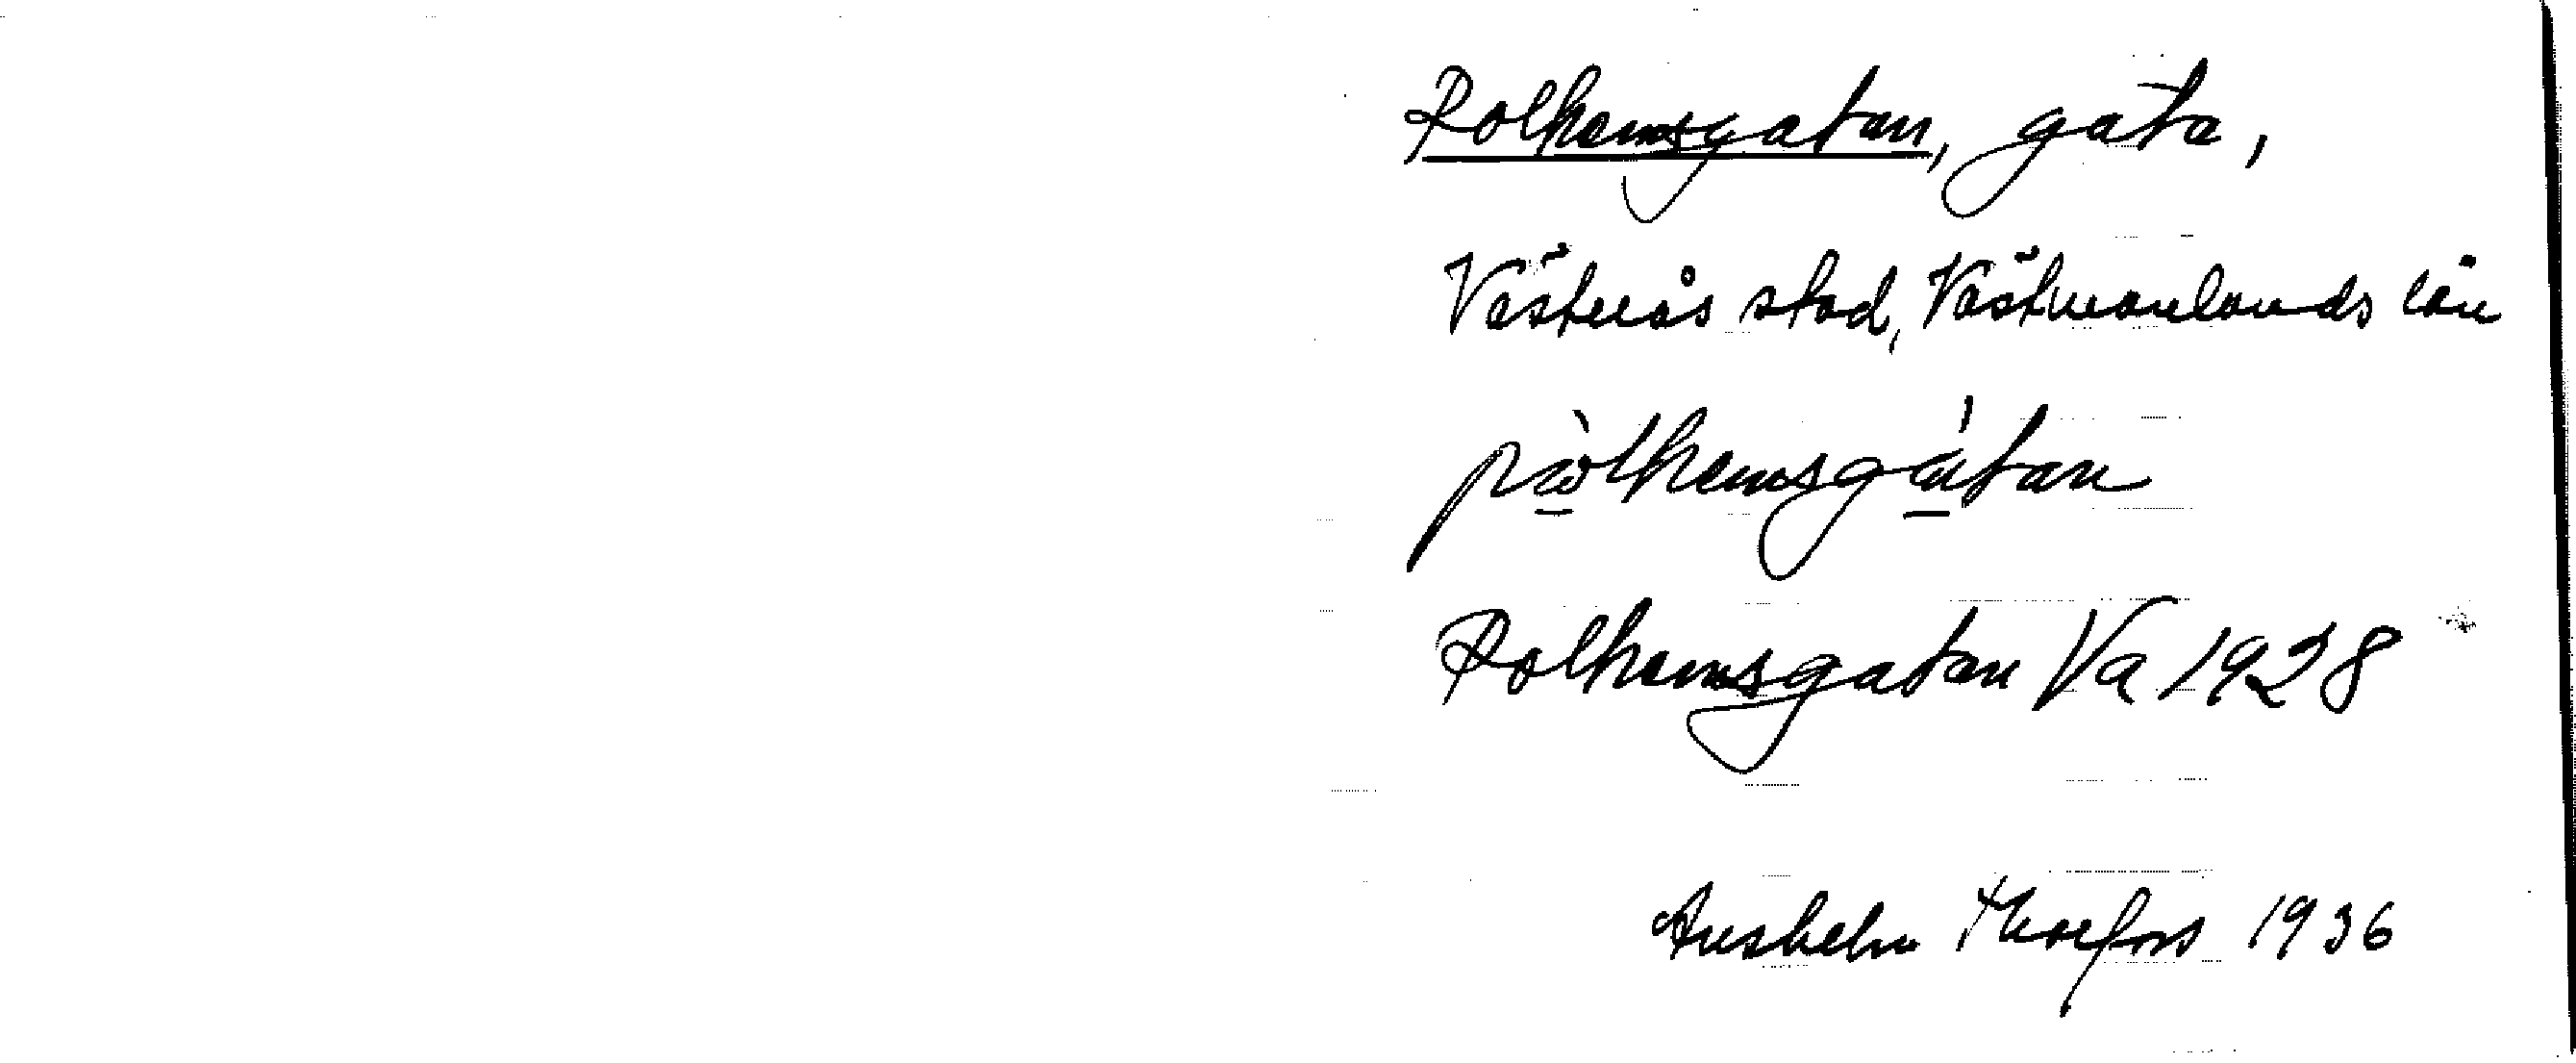 Polhemsgatan, gata,
Västerås stad, Västmanlands län
pòlhemsgátan
Polhemsgatan Va 1928
Anshelm Thorfors 1936